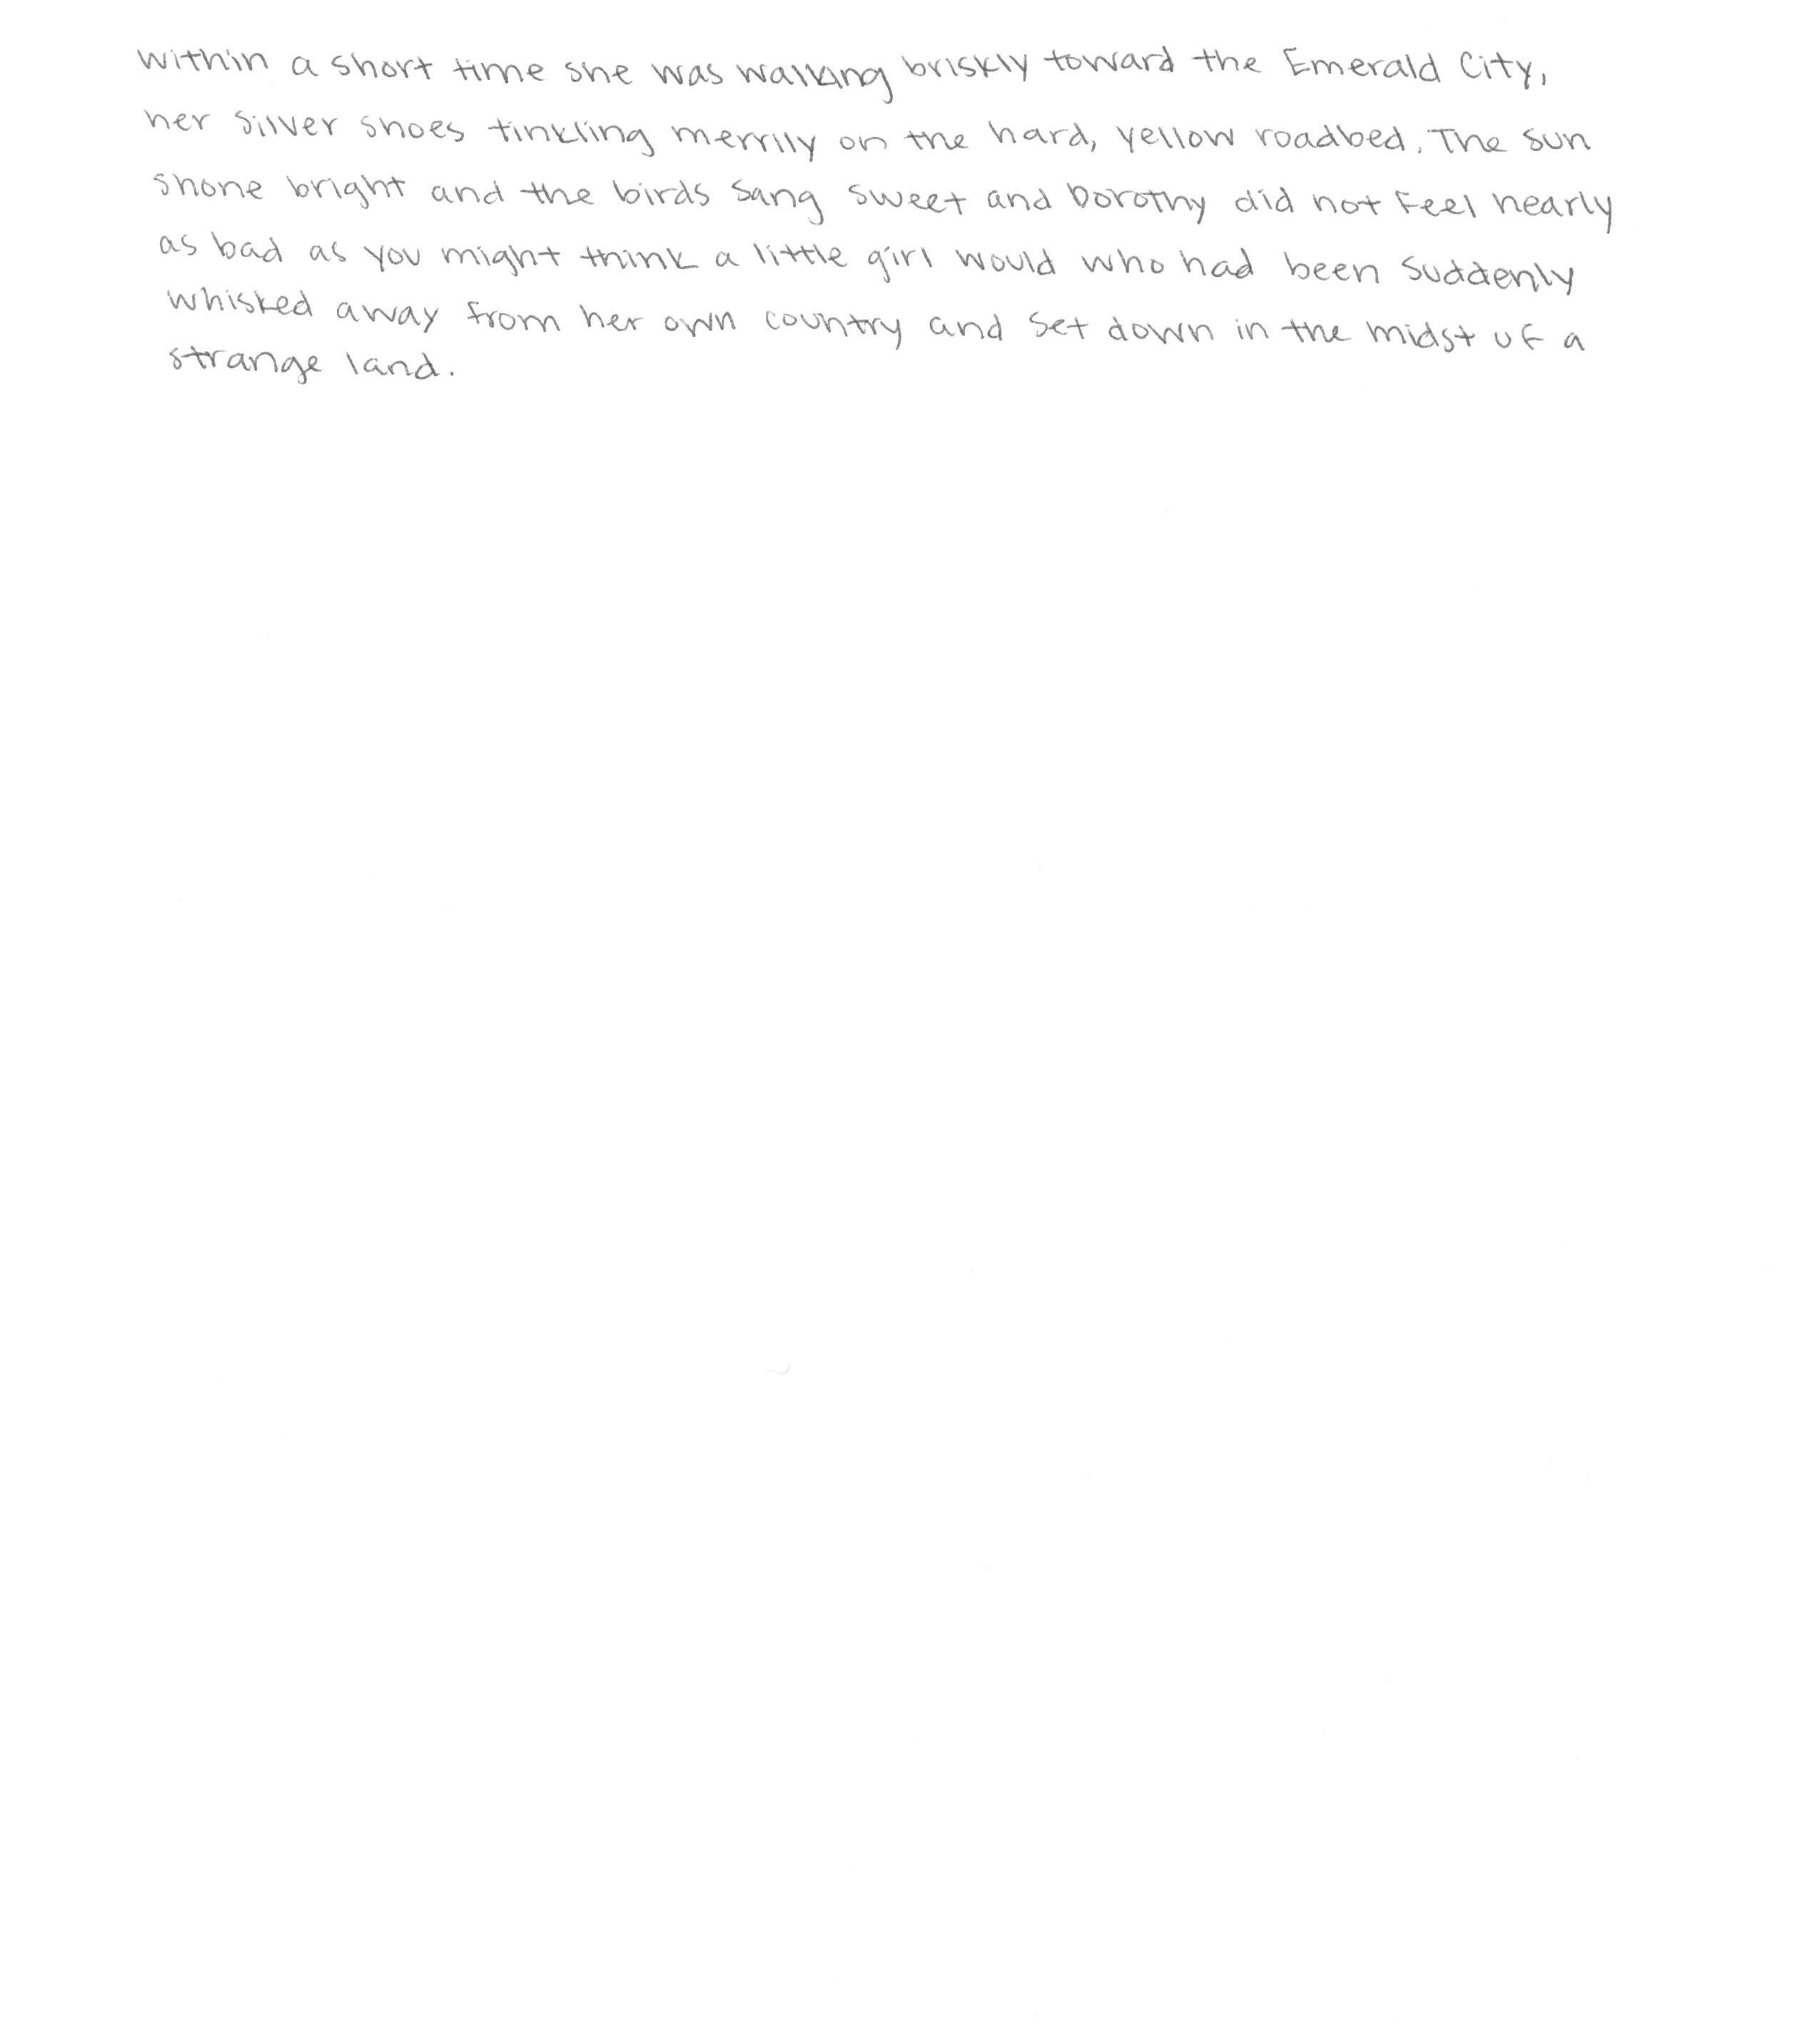 Within a short time she was walking briskly toward the Emerald City,
her Silver Shoes tinkling merrily on the hard, yellow roadbed. The sun
shone bright and the birds sang sweet and Dorothy did not feel nearly
as bad as you might think a little girl would who had been suddenly
whisked away from her own country and set down in the midst of a
strange land.